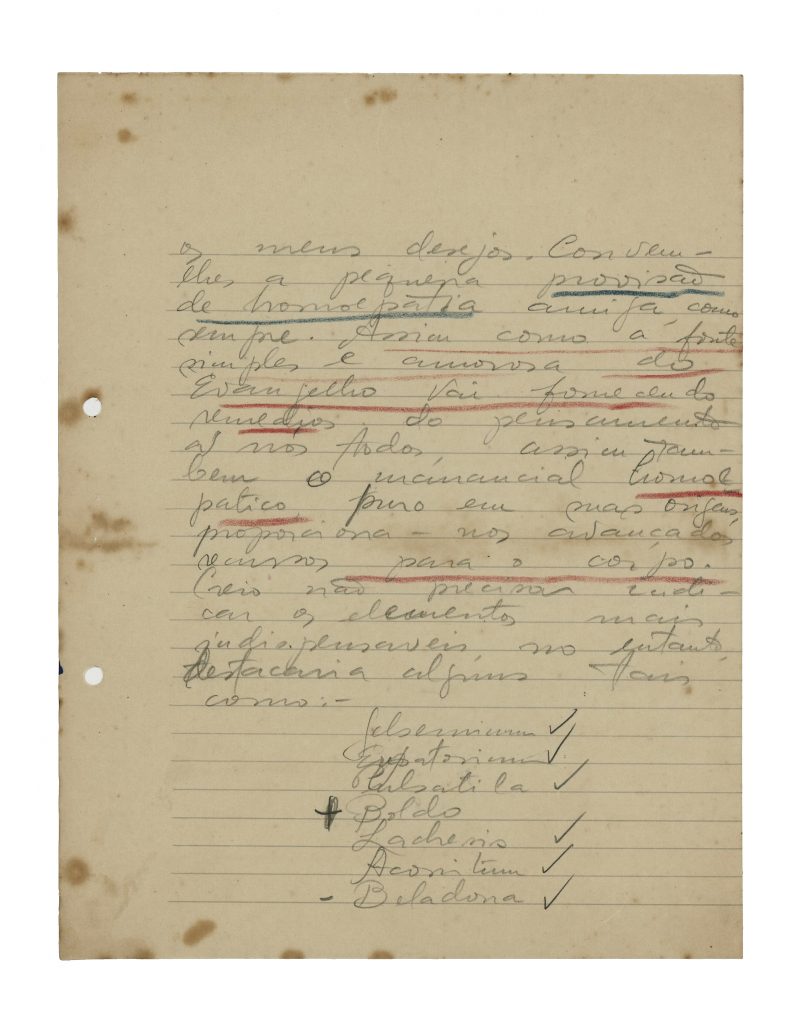 os meus desejos. Convem-
lhes a pequena provisão
de homoepatia amiga, como
sempre. Assim como a fonte
simples e amorosa do
Evangelho vai fornecendo
remedios do pensamento
a nós todos, assim tam-
bem o manancial homoe
patico, puro em suas origens,
proporciona-nos avançados
recursos para o corpo.
Creio não precisar indi-
car os elementos mais
indispensaveis, no entanto,
destacaria alguns tais
como:-
Gelsemium ✓
Eupatorium ✓
Pulsatila ✓
+ Boldo
Lachesis ✓
Aconitum ✓
- Beladona ✓